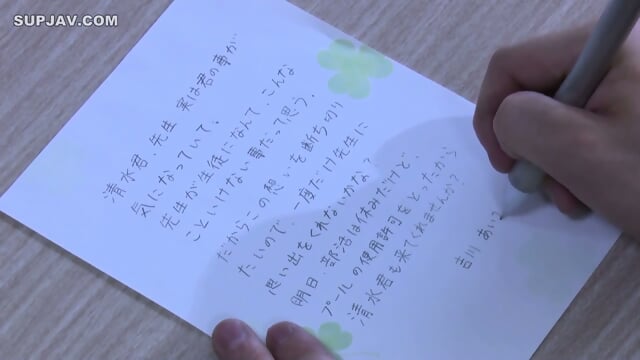 SUPJAV.COM
清水君、先生 実は君の事が
気になっていて。
先生が生徒になんて、こんな
こといけない事だって思う。
だからこの想いを断ち切り
たいので、一度だけ先生に
思い出をくれないかな？
明日 部活は休みだけど、
プールの使用許可をとったから
清水君も来てくれませんか？
吉川 あい